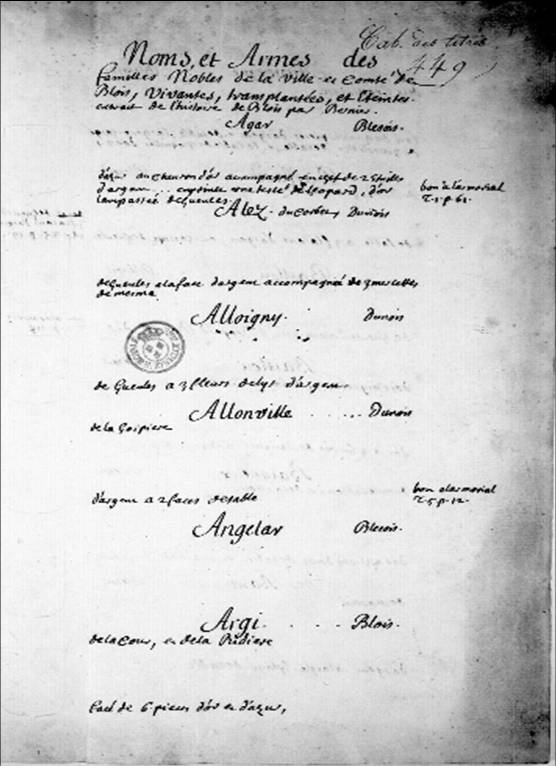 Cab. des titres
449
Noms, et Armes des
familles Nobles de la Ville et Comté de
Blois, vivantes, transplantées, et Eteintes.
extrait de l'histoire de Blois par Bernier.
Agar Blesois.
d'azur au chevron d'or acompagné en chef de 2 Etoiles
d'argent ... en pointe une teste de Leopard, d'or
lampassée de Gueules
bon a l'armorial
T. 5. p. 61.
Alez. du Corbet, Dunois
de Gueules a la face d'argent accompagnée de 3 merlettes
de mesme
Alloigny. Dunois
de Gueules a 3 fleurs de lys d'argent
Allonville . . . . . Dunois
de la
d'argent a 2 faces de sable
bon a l'armorial
T. 5. p. 12.
Angelar Blesois.
Argi. . . . . Blois.
de la Cour, et de la
de 6. pieces d'or et d'azur,